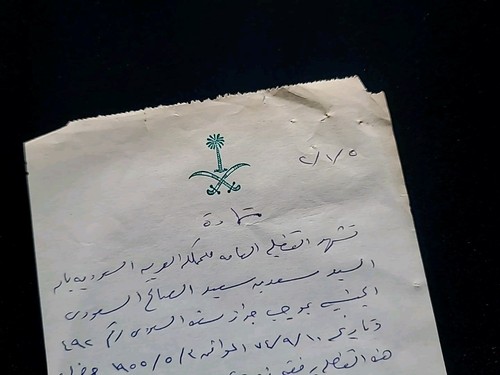 ٢/١/٥
شهادة
تشهد القنصلية العامة للمملكة العربية السعودية بان
السيد سعد بن سعيد الصالح السعودي
الجنسية بموجب جواز سفره السعودي رقم ٤٩٢
وتاريخ ٧٤/٩/١٠ الموافق ١٩٥٥/٥/٢
هذه القنصلية